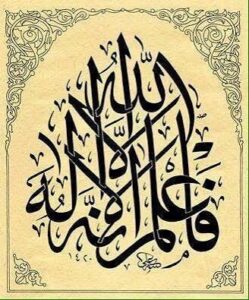 فَاعْلَمْ أَنَّهُ لَا إِلَٰهَ إِلَّا اللَّهُ
١٤٢٠